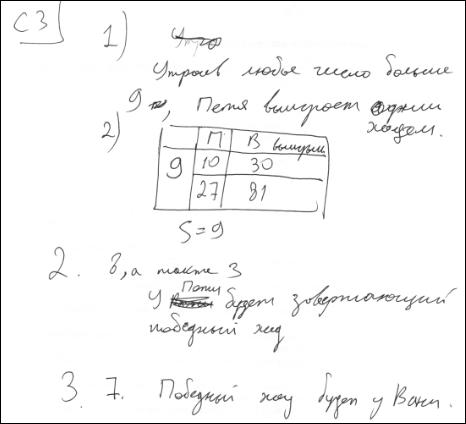 С3
1)
Утроив любое число больше
9, Петя выиграет одним
ходом.
2)
П В выигрыш
9 10 30
27 81
S=9
2. 8, а также 3
У Пети будет завершающий
победный ход
3. 7. Победный ход будет у Вани.